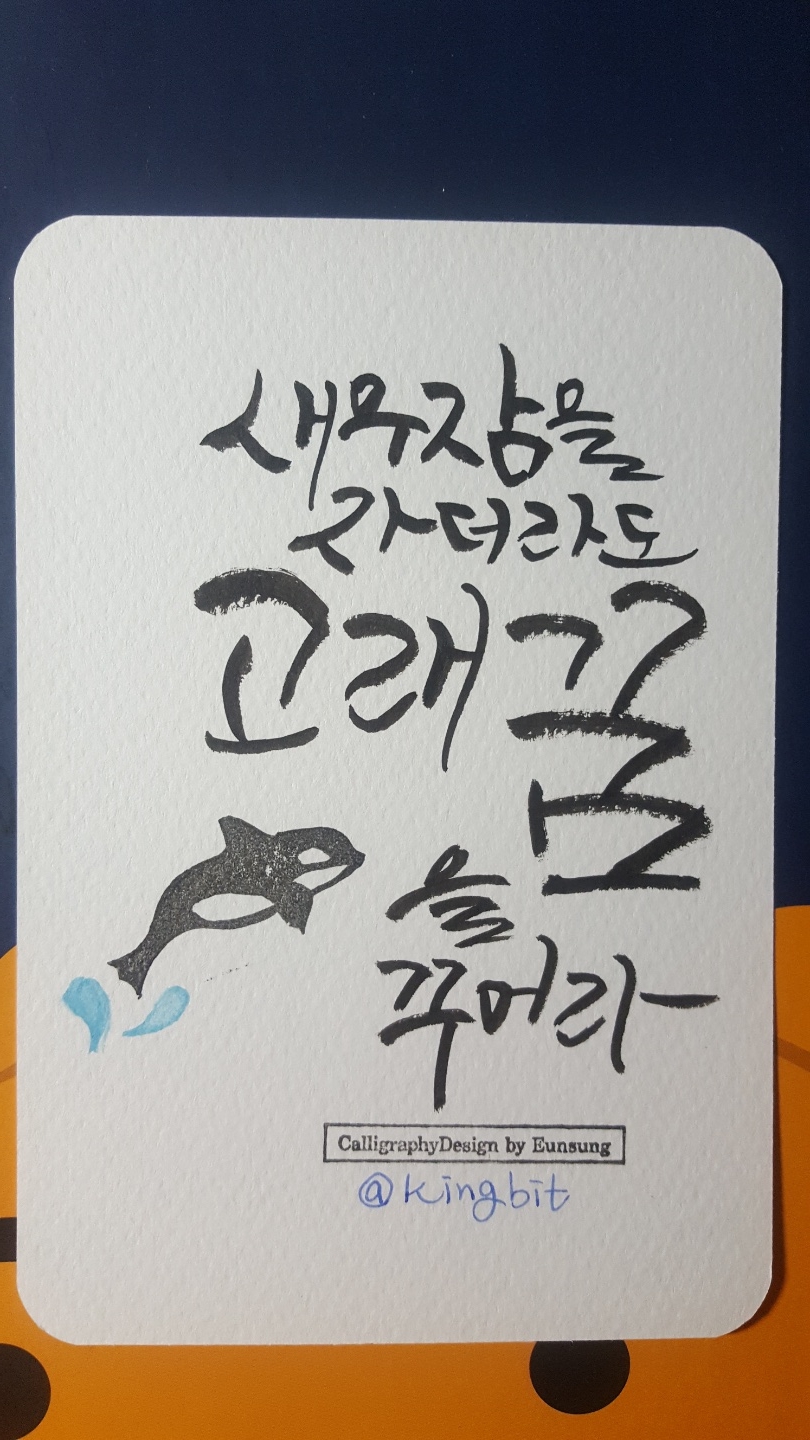 새우잠을
자더라도
고래꿈
을
꾸어라
CalligraphyDesign by Eunsung
@kingbit